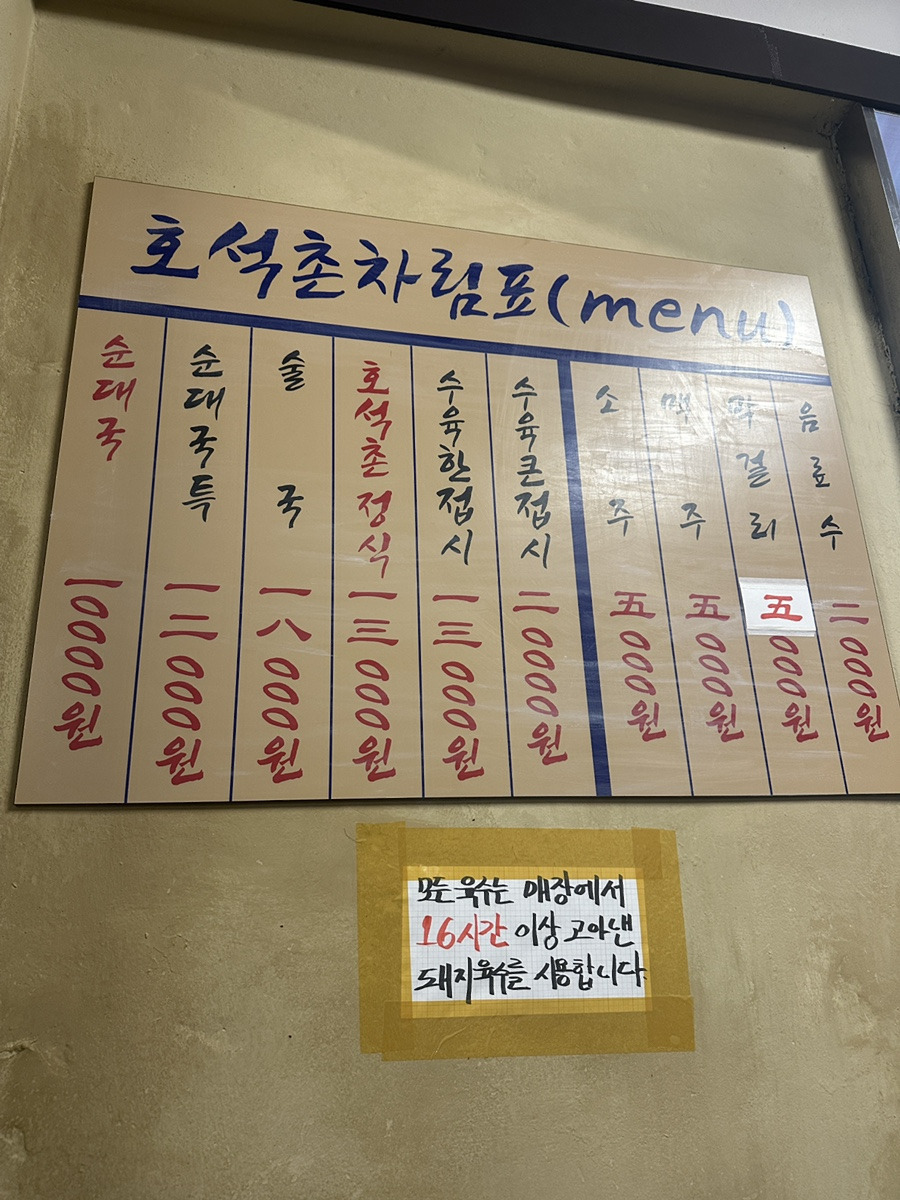 호석촌차림표(menu)
순대국 一0000원
순대국특 一二000원
술국 一八000원
호석촌정식 一三000원
수육한접시 一三000원
수육큰접시 二0000원
소주 五000원
맥주 五000원
막걸리 五000원
음료수 二000원
모든 육수는 매장에서
16시간 이상 고아낸
돼지육수를 사용합니다.